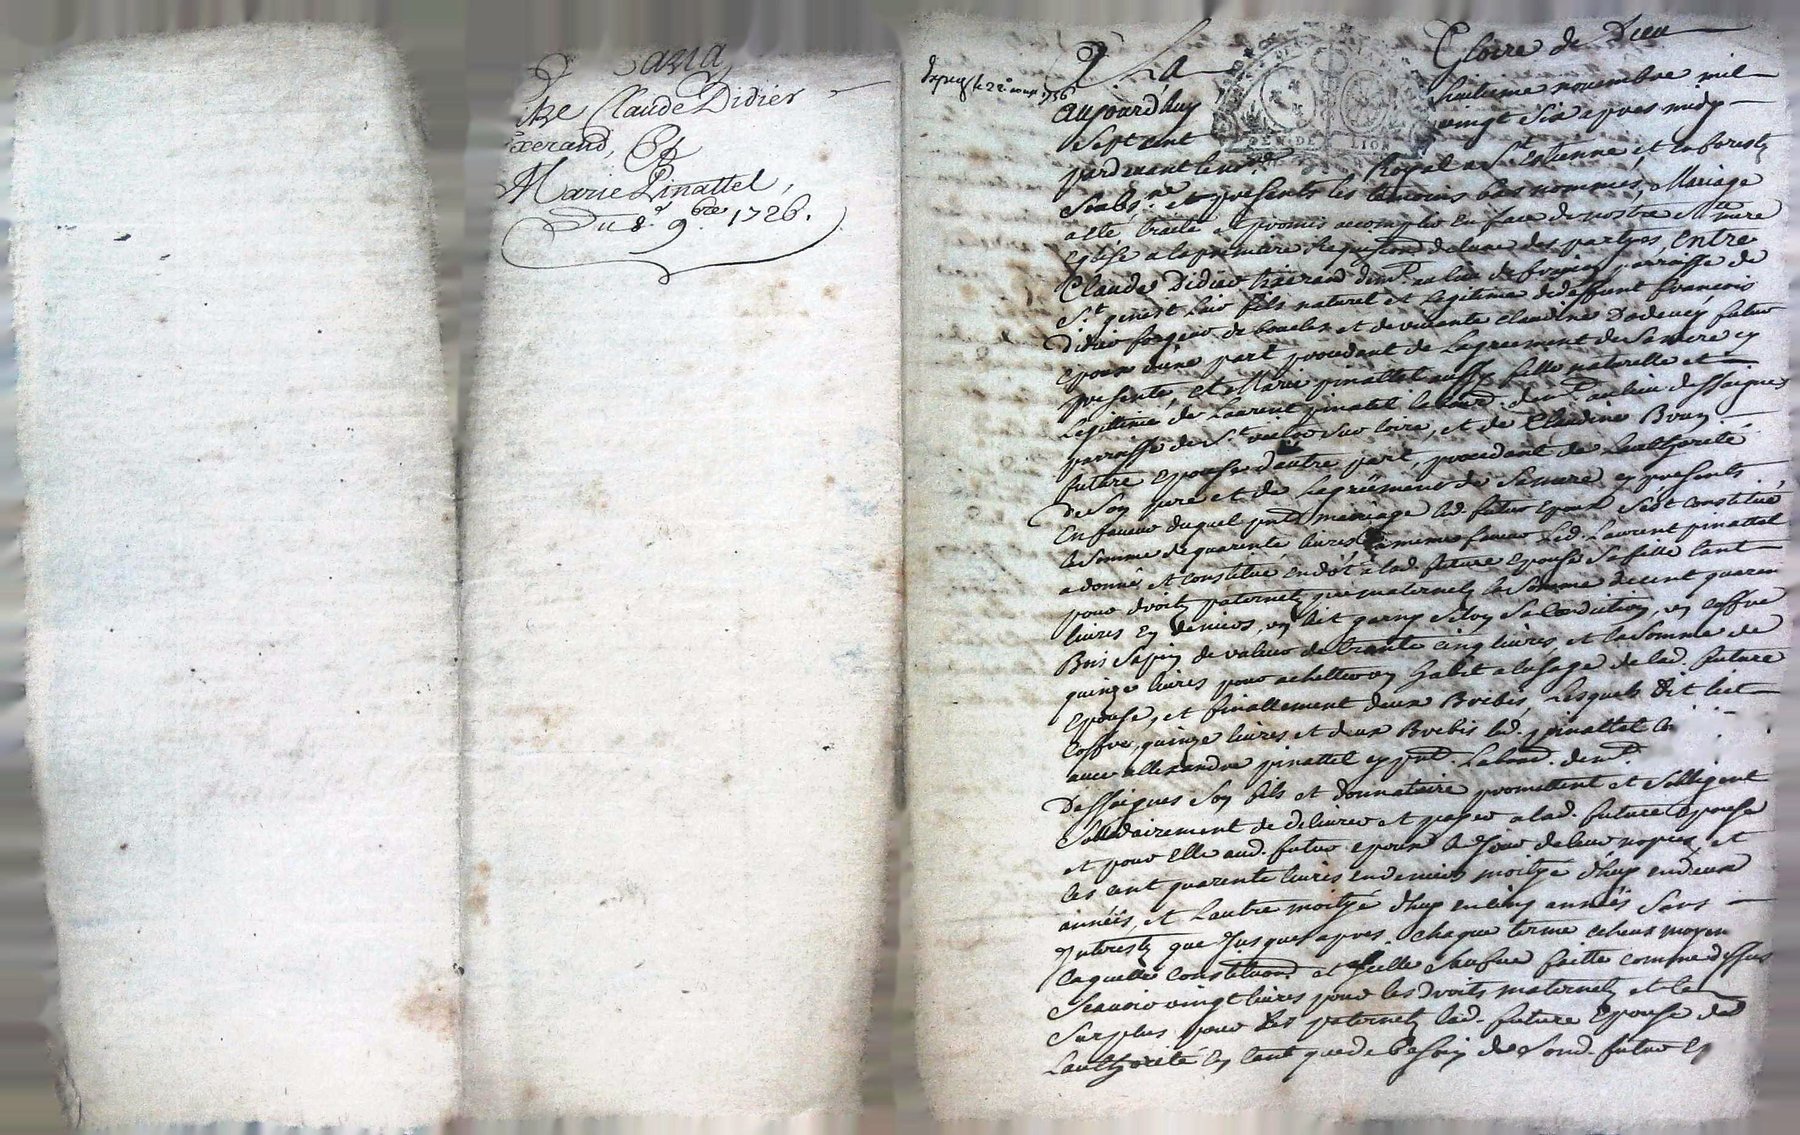 Claude Didier
xerand, Et
Marie Pinattel,
Du 8.e 9.bre 1726.
A La Gloire de Dieu
aujourd'huy huitieme novembre mil
sept cent vingt six apres midy
pardevant le no.re Royal a S.t Estienne et en forestz
soubs.né et presents les temoins bas nommés, Mariage
a été traité et promis accomplir en face de nostre S.te mere
Eglise a la premiere requisition de l'une des partyes, Entre
Claude Didier
S.t genest Lair fils naturel et legitime de deffunt francois
Didier forgeur de boucles et de vivante Claudine futur
epoux d'une part procedant de l'agreement de sa mere cy
presente, et Marie pinattel aussy fille naturelle et
legitime de Laurent pinatel labour.r dem.t au lieu dessaignes
parroisse de S.t victor sur loire, et de Claudine Brun
future epouse d'autre part, procedant de l'authorité
de son pere et de l'agreément de sa mere cy presents
En faveur duquel p.nt mariage led. futur epoux s'est constitué
la somme de quarente livres, En meme faveur led. Laurent pinattel
a donné et constitué en dot a lad. future epouse sa fille tant
pour droits paternels que maternels la somme de cent quaren
livres en deniers, un lit garny selon sa condition, un coffre
Bois sapin de valeur de trante cinq livres, et la somme de
quinze livres pour achetter un habit a l'usage de lad. future
epouse, et finallement deux Brebis, Lesquels dit lict
coffre, quinze livres et deux Brebis led. pinattel
avec allexandre pinattel cy p.nt labour. dem.t
Dessaignes son fils et donnataire promettent et s'obligent
sollidairement de delivrer et payer a lad. future epouse
et pour elle aud. futur epoux le jour de leur nopces, et
les cent quarente livres en deniers moitye d'huy en deux
années, et l'autre moitye d'huy en cinq années sans
Interests que jusques apres chaque terme echeus moyen
laquelle constitution at icelle faitte comme dessus
scavoir vingt livres pour les droits maternels et le
surplus pour les paternels lad. future epouse de
l'authorité en tant que de besoin de sond. futur